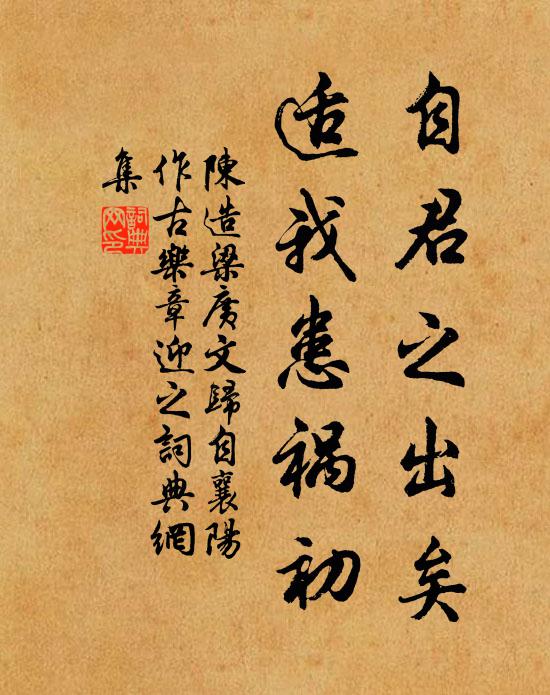 自君之出矣
适我患禍初
陳造梁廣文歸自襄陽
作古樂章迎之詞典網
集
詞典
网印